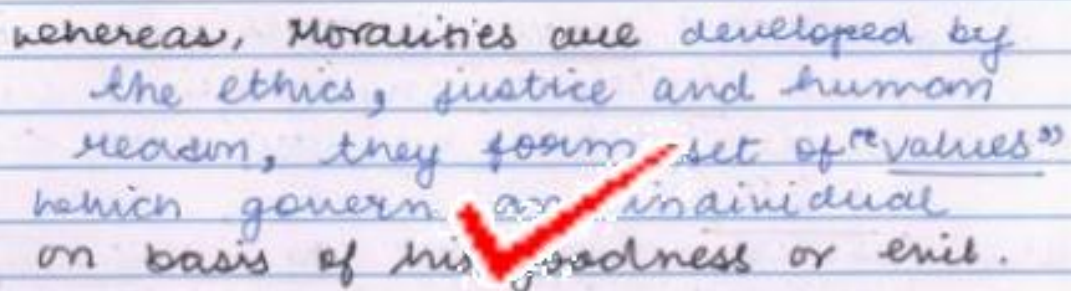 whereas, Moralities are developed by
the ethics, justice and human
reason, they form set of "values"
which govern an individual
on basis of his goodness or evil.